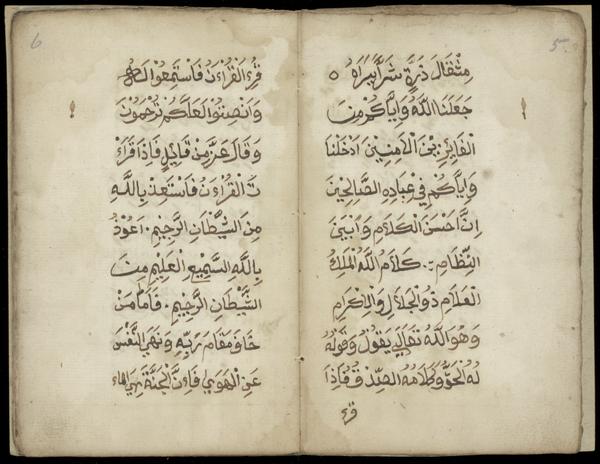 5
مِثْقَالَ ذَرَّةٍ شَرًّا يَرَاهُ
جَعَلَنَا اللَّهُ وَإِيَّاكُمْ مِنَ
الْفَائِزِينَ الْآمِنِينَ ادْخَلْنَا
وَإِيَّاكُمْ فِي عِبَادِهِ الصَّالِحِينَ
إِنَّ أَحْسَنَ الْكَلَامِ وَأَبْيَنَ
النِّظَامِ كَلَامُ اللَّهِ الْمَلِكُ
الْعَلَّامِ ذُو الْجَلَالِ وَالْإِكْرَامِ
وَهُوَ اللَّهُ تَعَالَى يَقُولُ وَقَوْلُهُ
لَهُ الْحَقُّ وَكَلَامُهُ الصِّدْقُ فَإِذَا
قرء
6
قُرِءَ الْقُرْءَانُ فَاسْتَمِعُوا لَهُ
وَانْصِتُوا لَعَلَّكُمْ تُرْحَمُونَ
وَقَالَ عَزَّ مِنْ قَائِلٍ فَإِذَا قَرَاءْ
تَ الْقُرْءَانَ فَاسْتَعِذْ بِاللَّهِ
مِنَ الشَّيْطَانِ الرَّجِيمِ. اَعُوْذُ
بِاللَّهِ السَّمِيعِ الْعَلِيمِ مِنَ
الشَّيْطَانِ الرَّجِيمِ. فَأَمَّا مَنْ
خَافَ مَقَامَ رَبِّهِ وَنَهَى النَّفْسَ
عَنِ الْهَوَى فَإِنَّ الْجَنَّةَ هِيَ الْمَاءْ